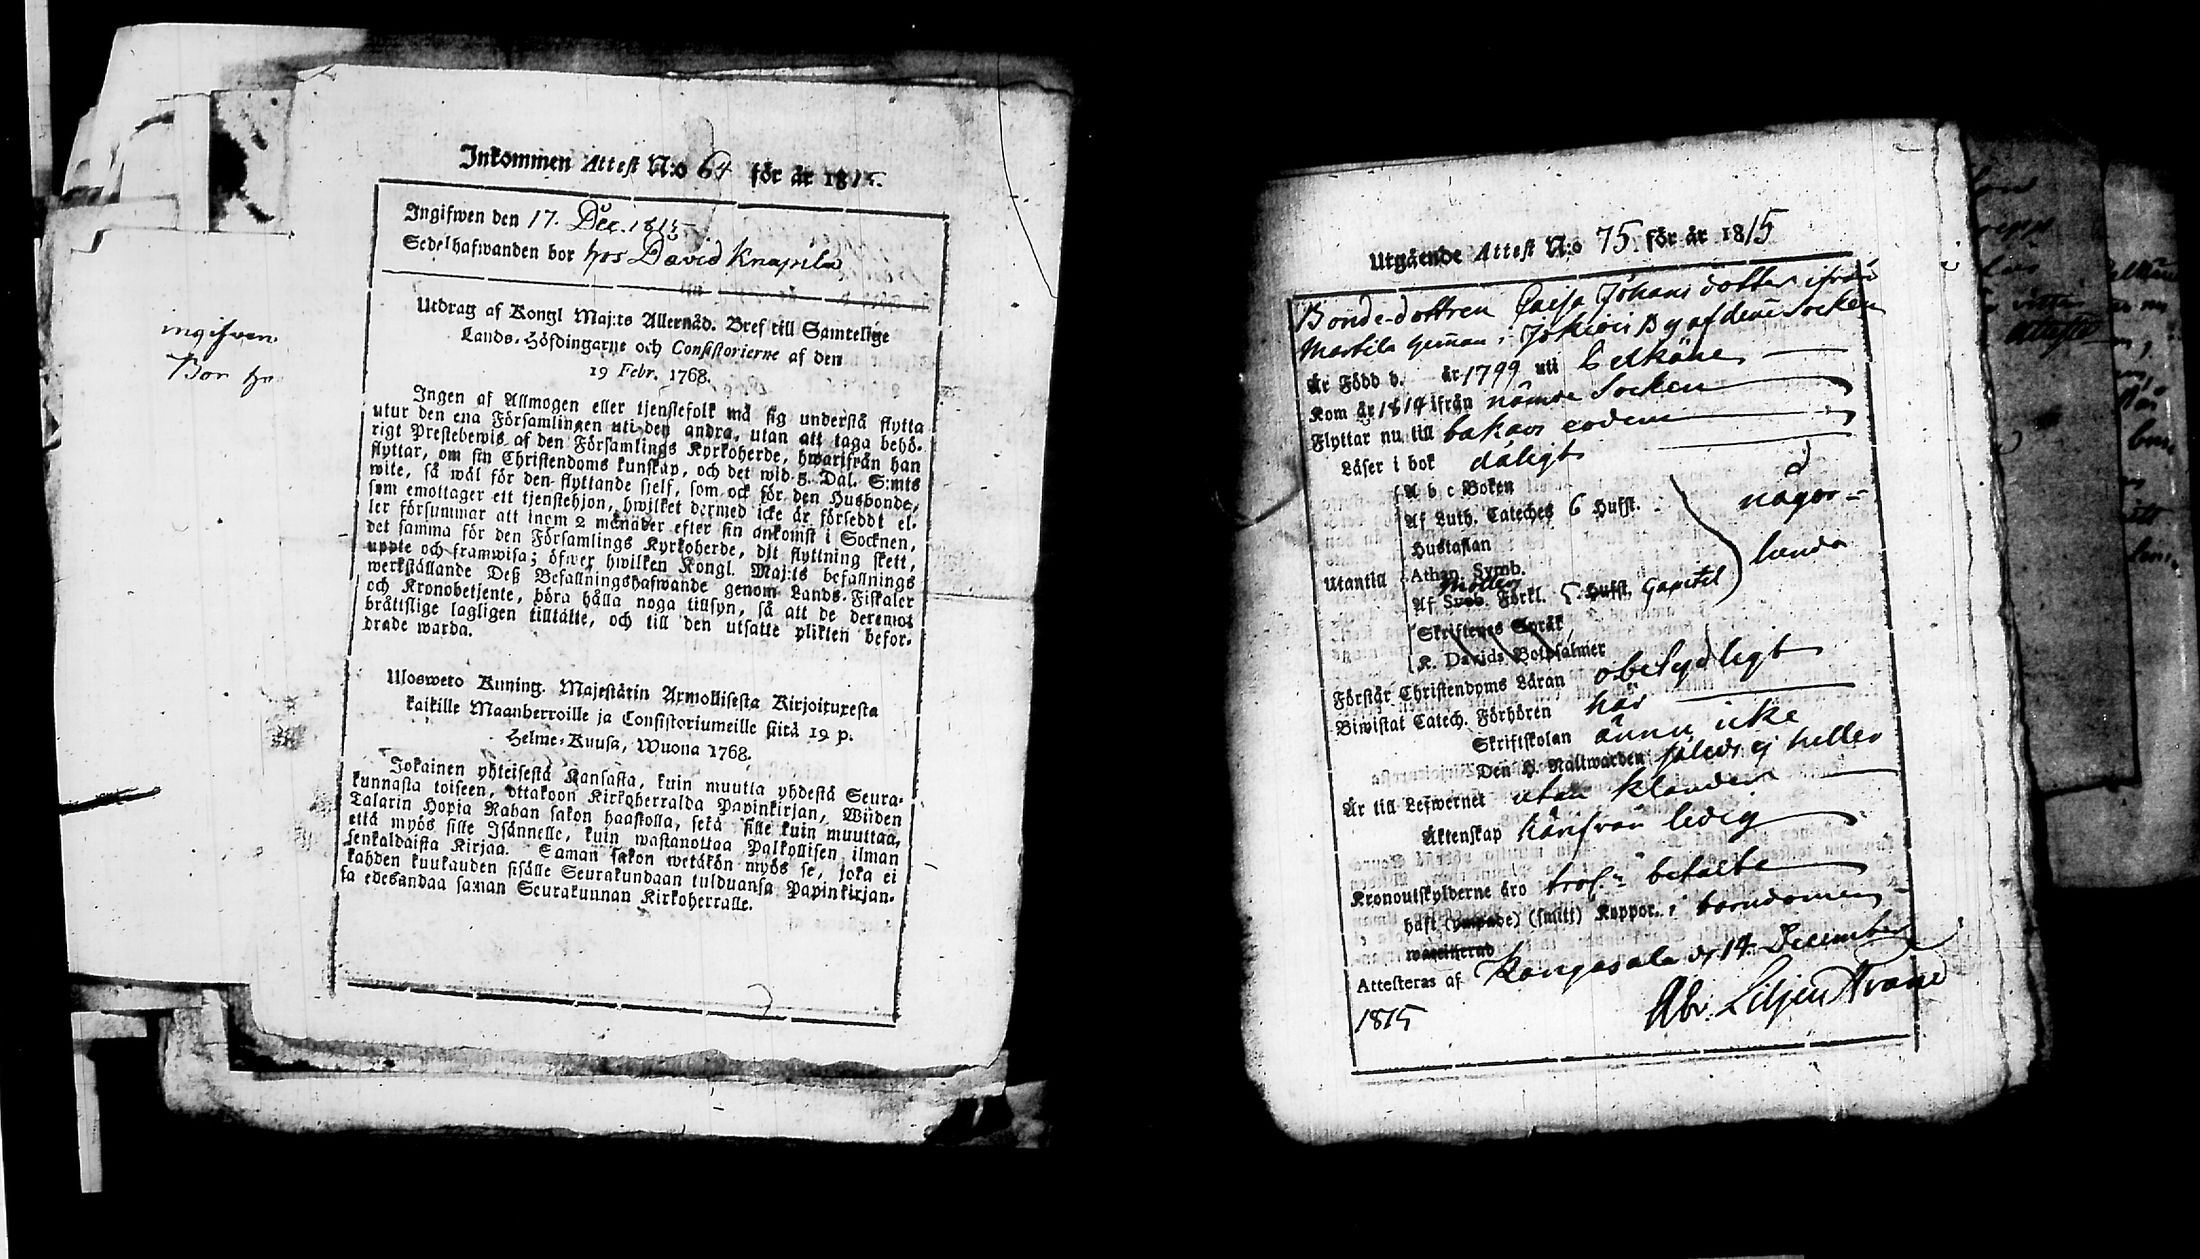 ingifven
Bor hos
Inkommen Attest N:o 64 för år 1815.
Ingifwen den 17. Dec. 1815
Sedelhafwanden bor hos David Knapila
Utdrag af Kongl Maj:ts Allernåd. Bref till Samtelige
Lands-Höfdingarne och Consistorierne af den
19 Febr. 1768.
Ingen af Allmogen eller tjenstefolk må sig understå flytta
utur den ena Församlingen uti den andra, utan att taga behö-
rigt Prestebewis af den Församlings Kyrkoherde, hwarifrån han
flyttar, om sin Christendoms kunskap, och det wid 5. Dal. S:mts
wite, så wäl för den flyttande sjelf, som ock för den Husbonde,
som emottager ett tjenstehjon, hwilket dermed icke är försedt el-
ler försummar att inom 2 månader efter sin ankomst i Socknen,
det samma för den Församlings Kyrkoherde, dit flyttning skett,
uppte och framwisa; öfwer hwilken Kongl. Maj:ts befallnings
werkställande Deß Befallningshafwande genom Lands-Fiskaler
och Kronobetjente, böra hålla noga tillsyn, så att de deremot
bråttslige lagligen tilltalte, och till den utsatte plikten befor-
drade warda.
Ulosweto Kuning. Majestätin Armollisesta Kirjoituxesta
kaikille Maanherroille ja Consistoriumeille siitä 19 p.
Helme-Kuusa, Wuona 1768.
Jokainen yhteisestä Kansasta, kuin muutta yhdestä Seura-
kunnasta toiseen, ottakoon Kirkoherralda Papinkirjan, Wiiden
Talarin Hopia Rahan sakon haastolla, sekä sille kuin muuttaa,
että myös sille Isännelle, kuin wastanottaa Palkollisen ilman
senkaldaista Kirjaa. Saman sakon wetäkön myös se, joka ei
kahden kuukauden sisälle Seurakundaan tulduansa Papinkirjan-
sa edesandaa saman Seurakunnan Kirkoherralle.
Utgående Attest N:o 75 för år 1815
Bonde-dottren Caisa Johans dotter ifrån
Marttila heman i Jokiois By af denne Socken
Är Född d. år 1799 uti Pelkäne
Kom år 1814 ifrån nämde Socken
Flyttar nu till bakars eodem
Läser i bok dåligt
A b c Boken
Af Luth. Cateches 6 Hufst. någor-
Hustaflan
Utantill Athan Symb. lunda
Möllers
Af Sveb. Förkl. 5. Hufst. Capitel
Skriftenes Språk
K. Davids Botpsalmer
Förstår Christendoms Läran obetydligt
Biwistat Catech. Förhören här
Skriftskolan ännu icke
Den H. Nattwarden således ej heller
Är till Lefwernet utan klander
Äktenskap härifrån ledig
Kronoutskylderne äro trol. betalte
haft (ympade) (smitt) Koppor. i barndomen
waccinerad
Attesteras af Kangasala d. 14 December
1815
Abr. Liljenstrand